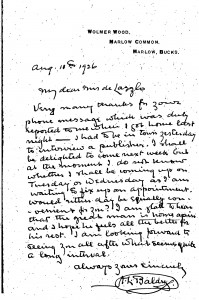 WOLMER WOOD,
MARLOW COMMON,
MARLOW, BUCKS.
Aug. 18th 1926
My dear Mrs de Laszlo
Very many thanks for your
phone message which was duly
reported to me when I got home last
night — I had to be in town yesterday
to interview a publisher. I shall
be delighted to come next week but
at the moment I do not know
whether I shall be coming up on
Tuesday or Wednesday as I am
waiting to fix up an appointment.
Would either day be equally con-
venient for you? I am glad to hear
that the great man is home again
and I hope he feels all the better for
his rest. I am looking forward to
seeing you all after what seems quite
a long interval.
Always yours sincerely
Baldry